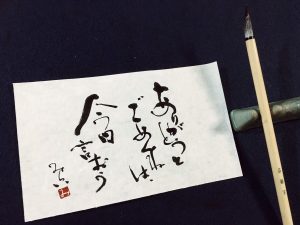 ありがとうと
ごめんねは、
今日言おう